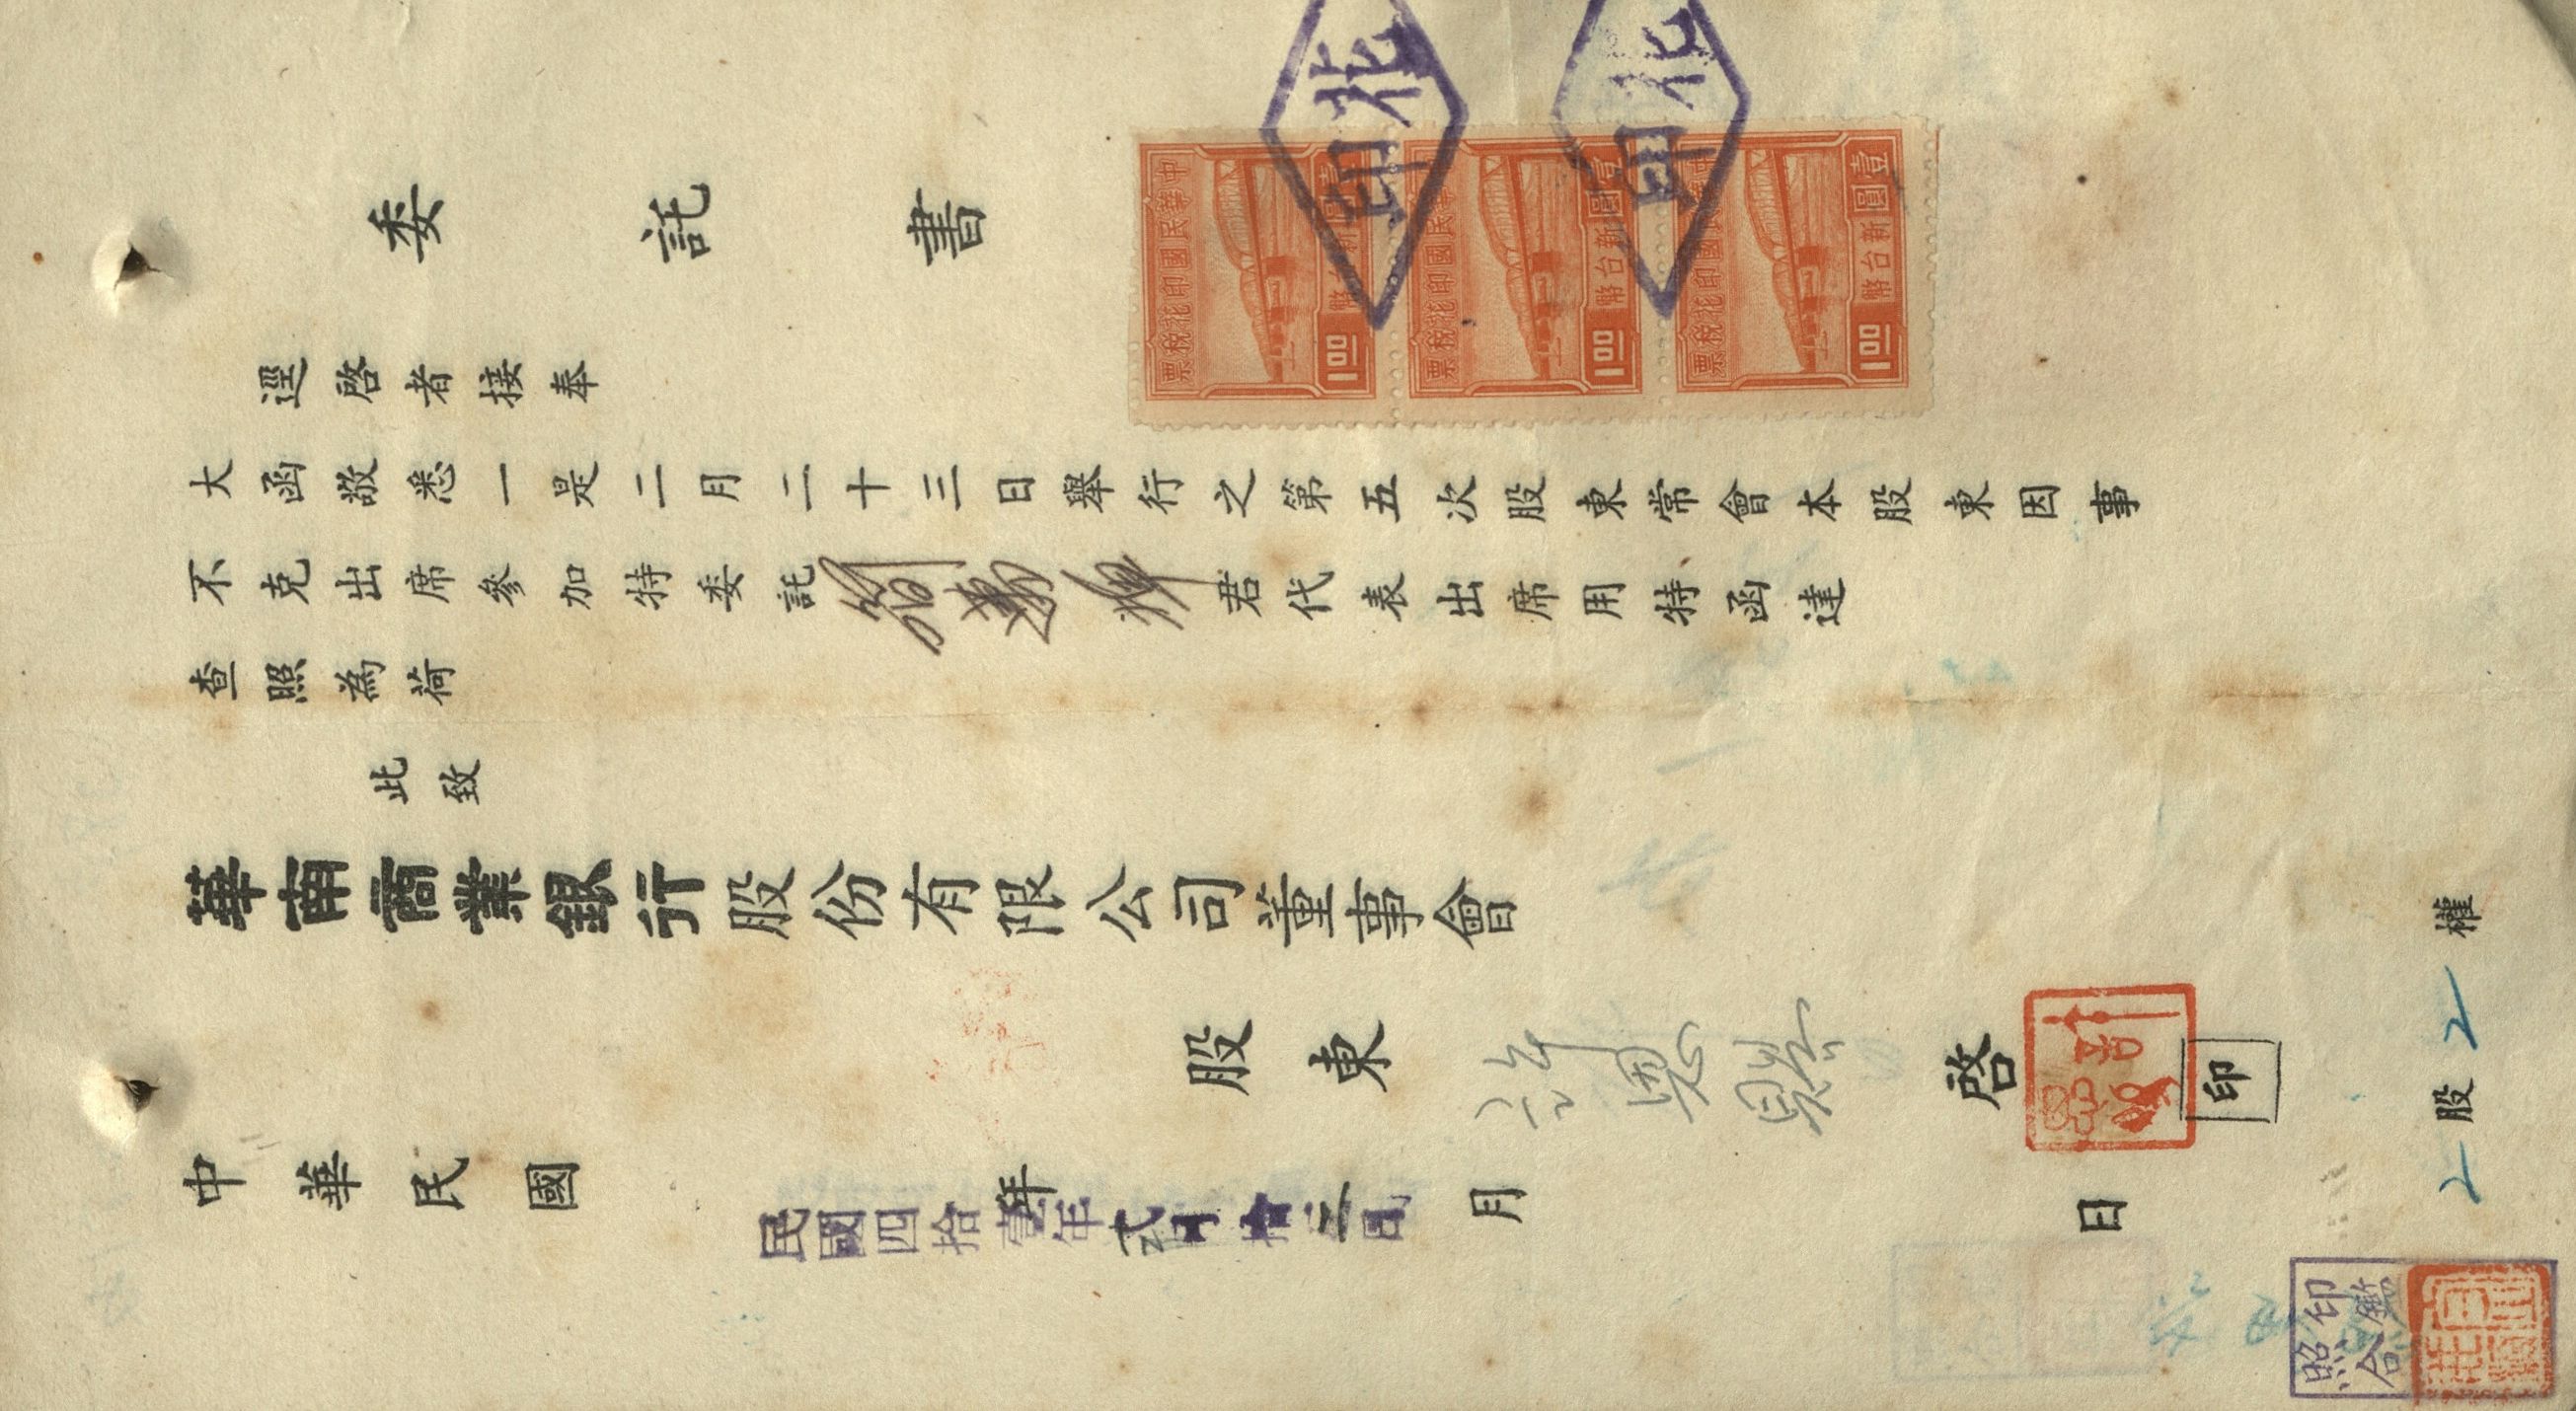 委託書
逕啓者接奉
大函敬悉一是二月二十三日舉行之第五次股東常會本股東因事
不克出席參加特委託君代表出席用特函達
查照為荷
此致
華南商業銀行股份有限公司董事會
股東 許 啓 印
中華民國 年 月 日
民國四拾壹年貳月拾三日
2股2權
印鑑
照合
中華民國印花稅票
新台幣壹圓
1.00
中華民國印花稅票
新台幣壹圓
1.00
中華民國印花稅票
新台幣壹圓
1.00
花印
花印